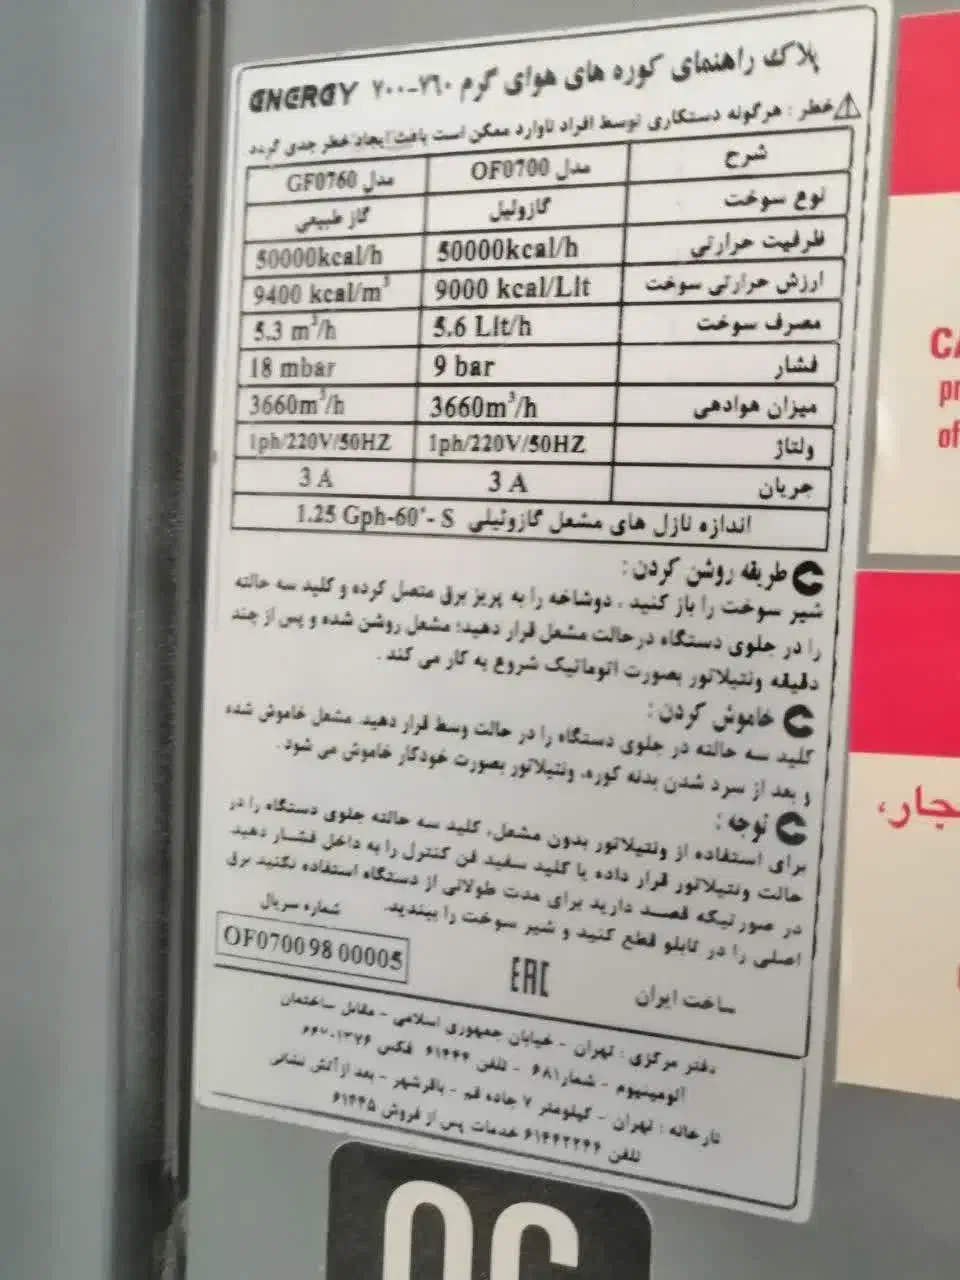 پلاک راهنمای کوره های هوای گرم ۷۶۰-۷۰۰ ENERGY
خطر : هرگونه دستکاری توسط افراد ناوارد ممکن است باعث ایجاد خطر جدی گردد
شرح مدل OF0700 مدل GF0760
نوع سوخت گازوئیل گاز طبیعی
ظرفیت حرارتی 50000kcal/h 50000kcal/h
ارزش حرارتی سوخت 9000 kcal/Lit 9400 kcal/m³
مصرف سوخت 5.6 Lit/h 5.3 m³/h
فشار 9 bar 18 mbar
میزان هوادهی 3660m³/h 3660m³/h
ولتاژ 1ph/220V/50HZ 1ph/220V/50HZ
جریان 3 A 3 A
اندازه نازل های مشعل گازوئیلی 1.25 Gph-60°- S
طریقه روشن کردن :
شیر سوخت را باز کنید ، دوشاخه را به پریز برق متصل کرده و کلید سه حالته
را در جلوی دستگاه درحالت مشعل قرار دهید؛ مشعل روشن شده و پس از چند
دقیقه ونتیلاتور بصورت اتوماتیک شروع به کار می کند .
خاموش کردن :
کلید سه حالته در جلوی دستگاه را در حالت وسط قرار دهید. مشعل خاموش شده
و بعد از سرد شدن بدنه کوره، ونتیلاتور بصورت خودکار خاموش می شود .
توجه :
برای استفاده از ونتیلاتور بدون مشعل، کلید سه حالته جلوی دستگاه را در
حالت ونتیلاتور قرار داده یا کلید سفید فن کنترل را به داخل فشار دهید
در صورتیکه قصد دارید برای مدت طولانی از دستگاه استفاده نکنید برق
اصلی را در تابلو قطع کنید و شیر سوخت را ببندید.
شماره سریال
OF0700 98 00005
EAC
ساخت ایران
دفتر مرکزی : تهران - خیابان جمهوری اسلامی - مقابل ساختمان
آلومینیوم - شماره ۶۸۱ - تلفن ۶۱۴۴۴ فکس ۶۶۷۰۱۳۷۶
کارخانه : تهران - کیلومتر ۷ جاده قم - باقرشهر - بعد از آتش نشانی
تلفن ۶۱۴۴۲۲۴۴ خدمات پس از فروش ۶۱۴۴۵
CA
pr
of
جار،